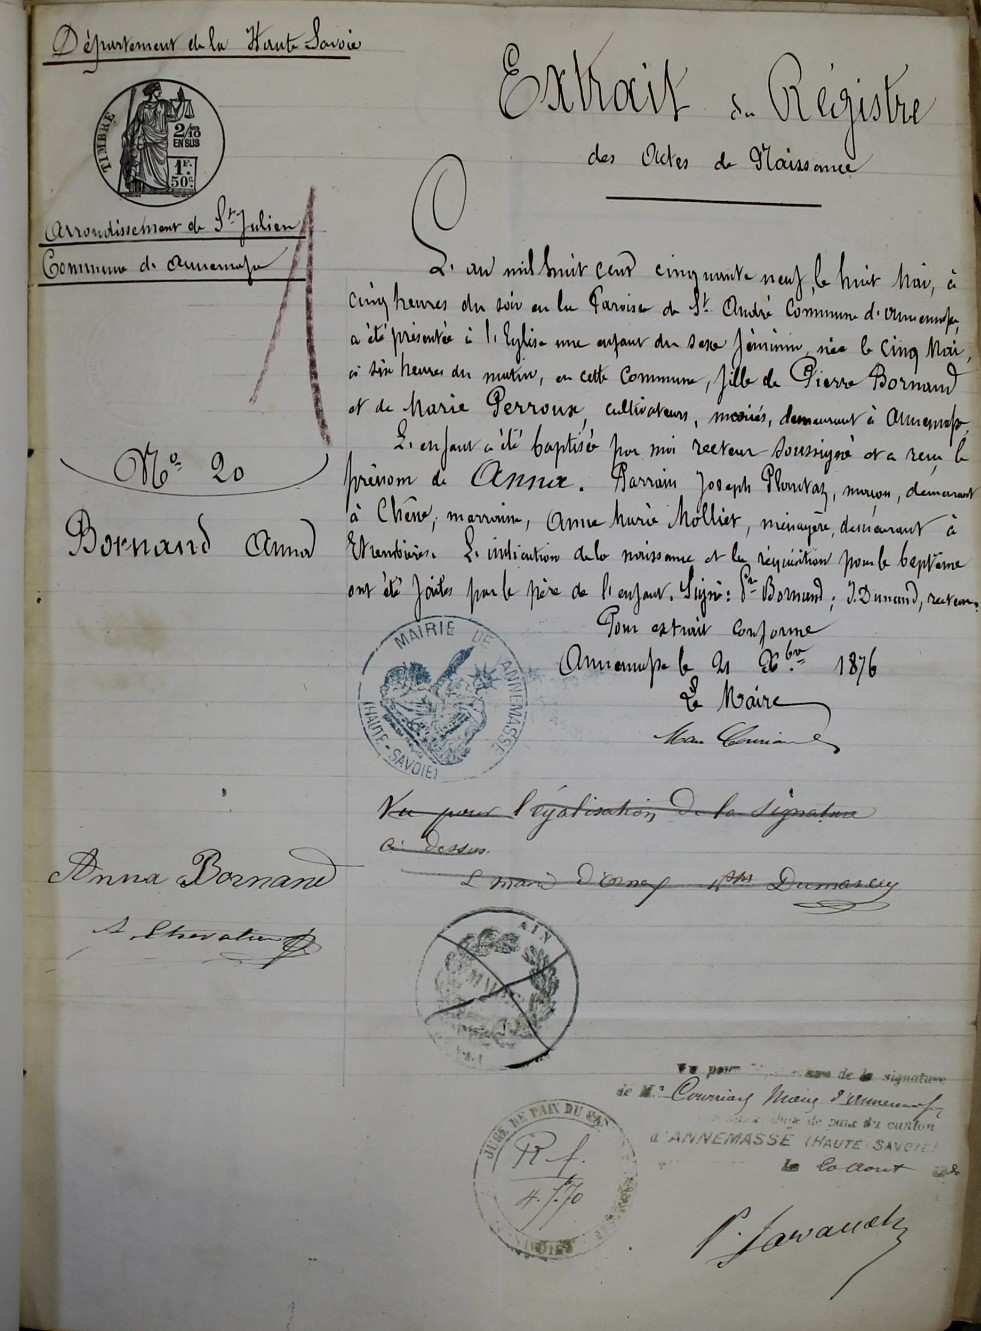 Département de la Haute Savoie
TIMBRE
2/10
EN SUS
1F.
50c.
Arrondissement de St Julien
Commune de Annemasse
Extrait du Régistre
des Actes de Naissance
L'an mil huit cent cinquante neuf, le huit Mai, à
cinq heures du soir en la Paroise de St André Commune d'Annemasse,
a été présentée à l'Eglise une enfant du sexe féminin, née le cinq Mai,
à six heures du matin, en cette Commune, fille de Pierre Bornand
et de Marie Perroux, cultivateurs, mariés, demeurant à Annemasse.
L'enfant a été baptisée par moi recteur soussigné et a reçu le
prénom de Anna. Parrain Joseph Plontaz, maçon, demeurant
à Chêne, marraine, Anne Marie Molliet, ménagère, demeurant à
Etrembières. L'indication de la naissance et la réquisition pour le baptême
ont été faites par le père de l'enfant. Signé: Pre Bornand; J. Dunand, recteur.
Pour extrait conforme
Annemasse le 21 Xbre 1876
Le Maire
No 20
Bornand Anna
MAIRIE DE ANNEMASSE
(HAUTE-SAVOIE)
Vu pour légalisation de la signature
ci dessus
Anna Bornand
AIN
Vu pour de la signature
de Mr Courriard Maire d'Annemasse
juge de paix du canton
d'ANNEMASSE (HAUTE SAVOIE)
le 20 Aout
JUGE DE PAIX DU CANTON
R f.